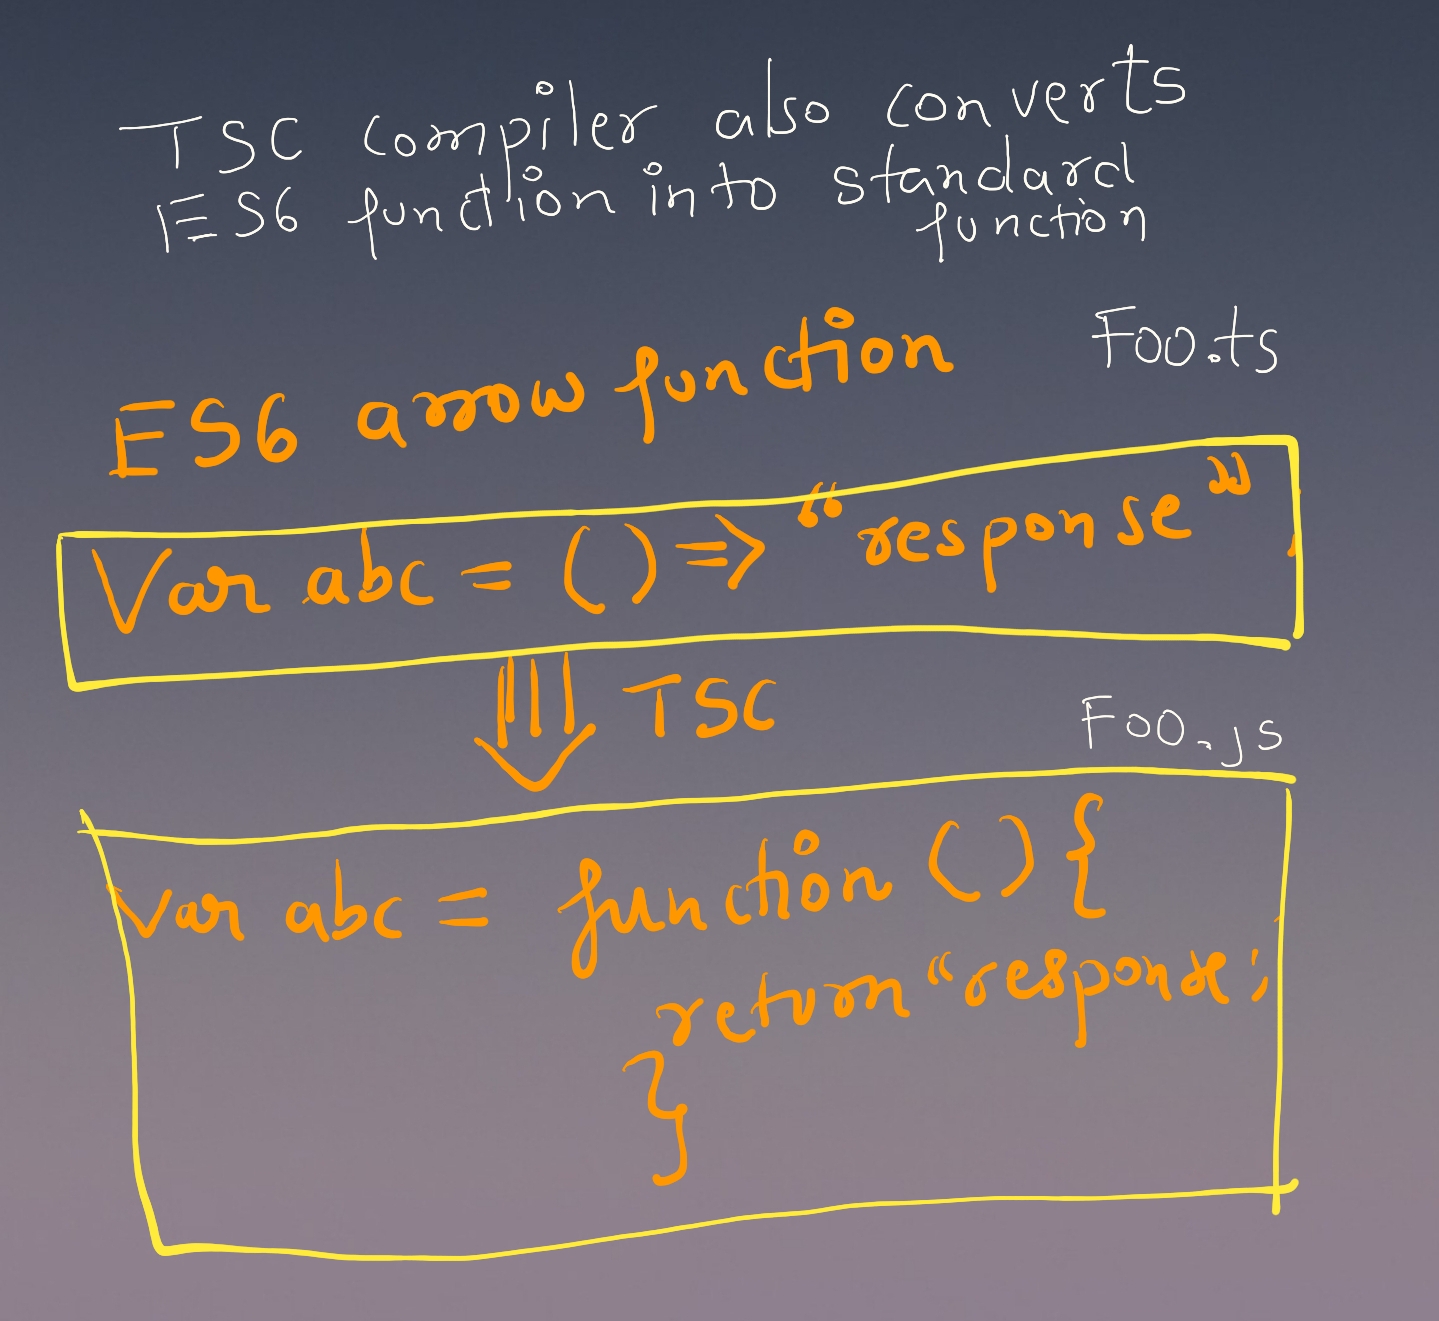 TSC compiler also converts
ES6 function into standard
function
Foo.ts
ES6 arrow function
Var abc = () => “response”
TSC
Foo.js
Var abc = function () {
return “response;
}